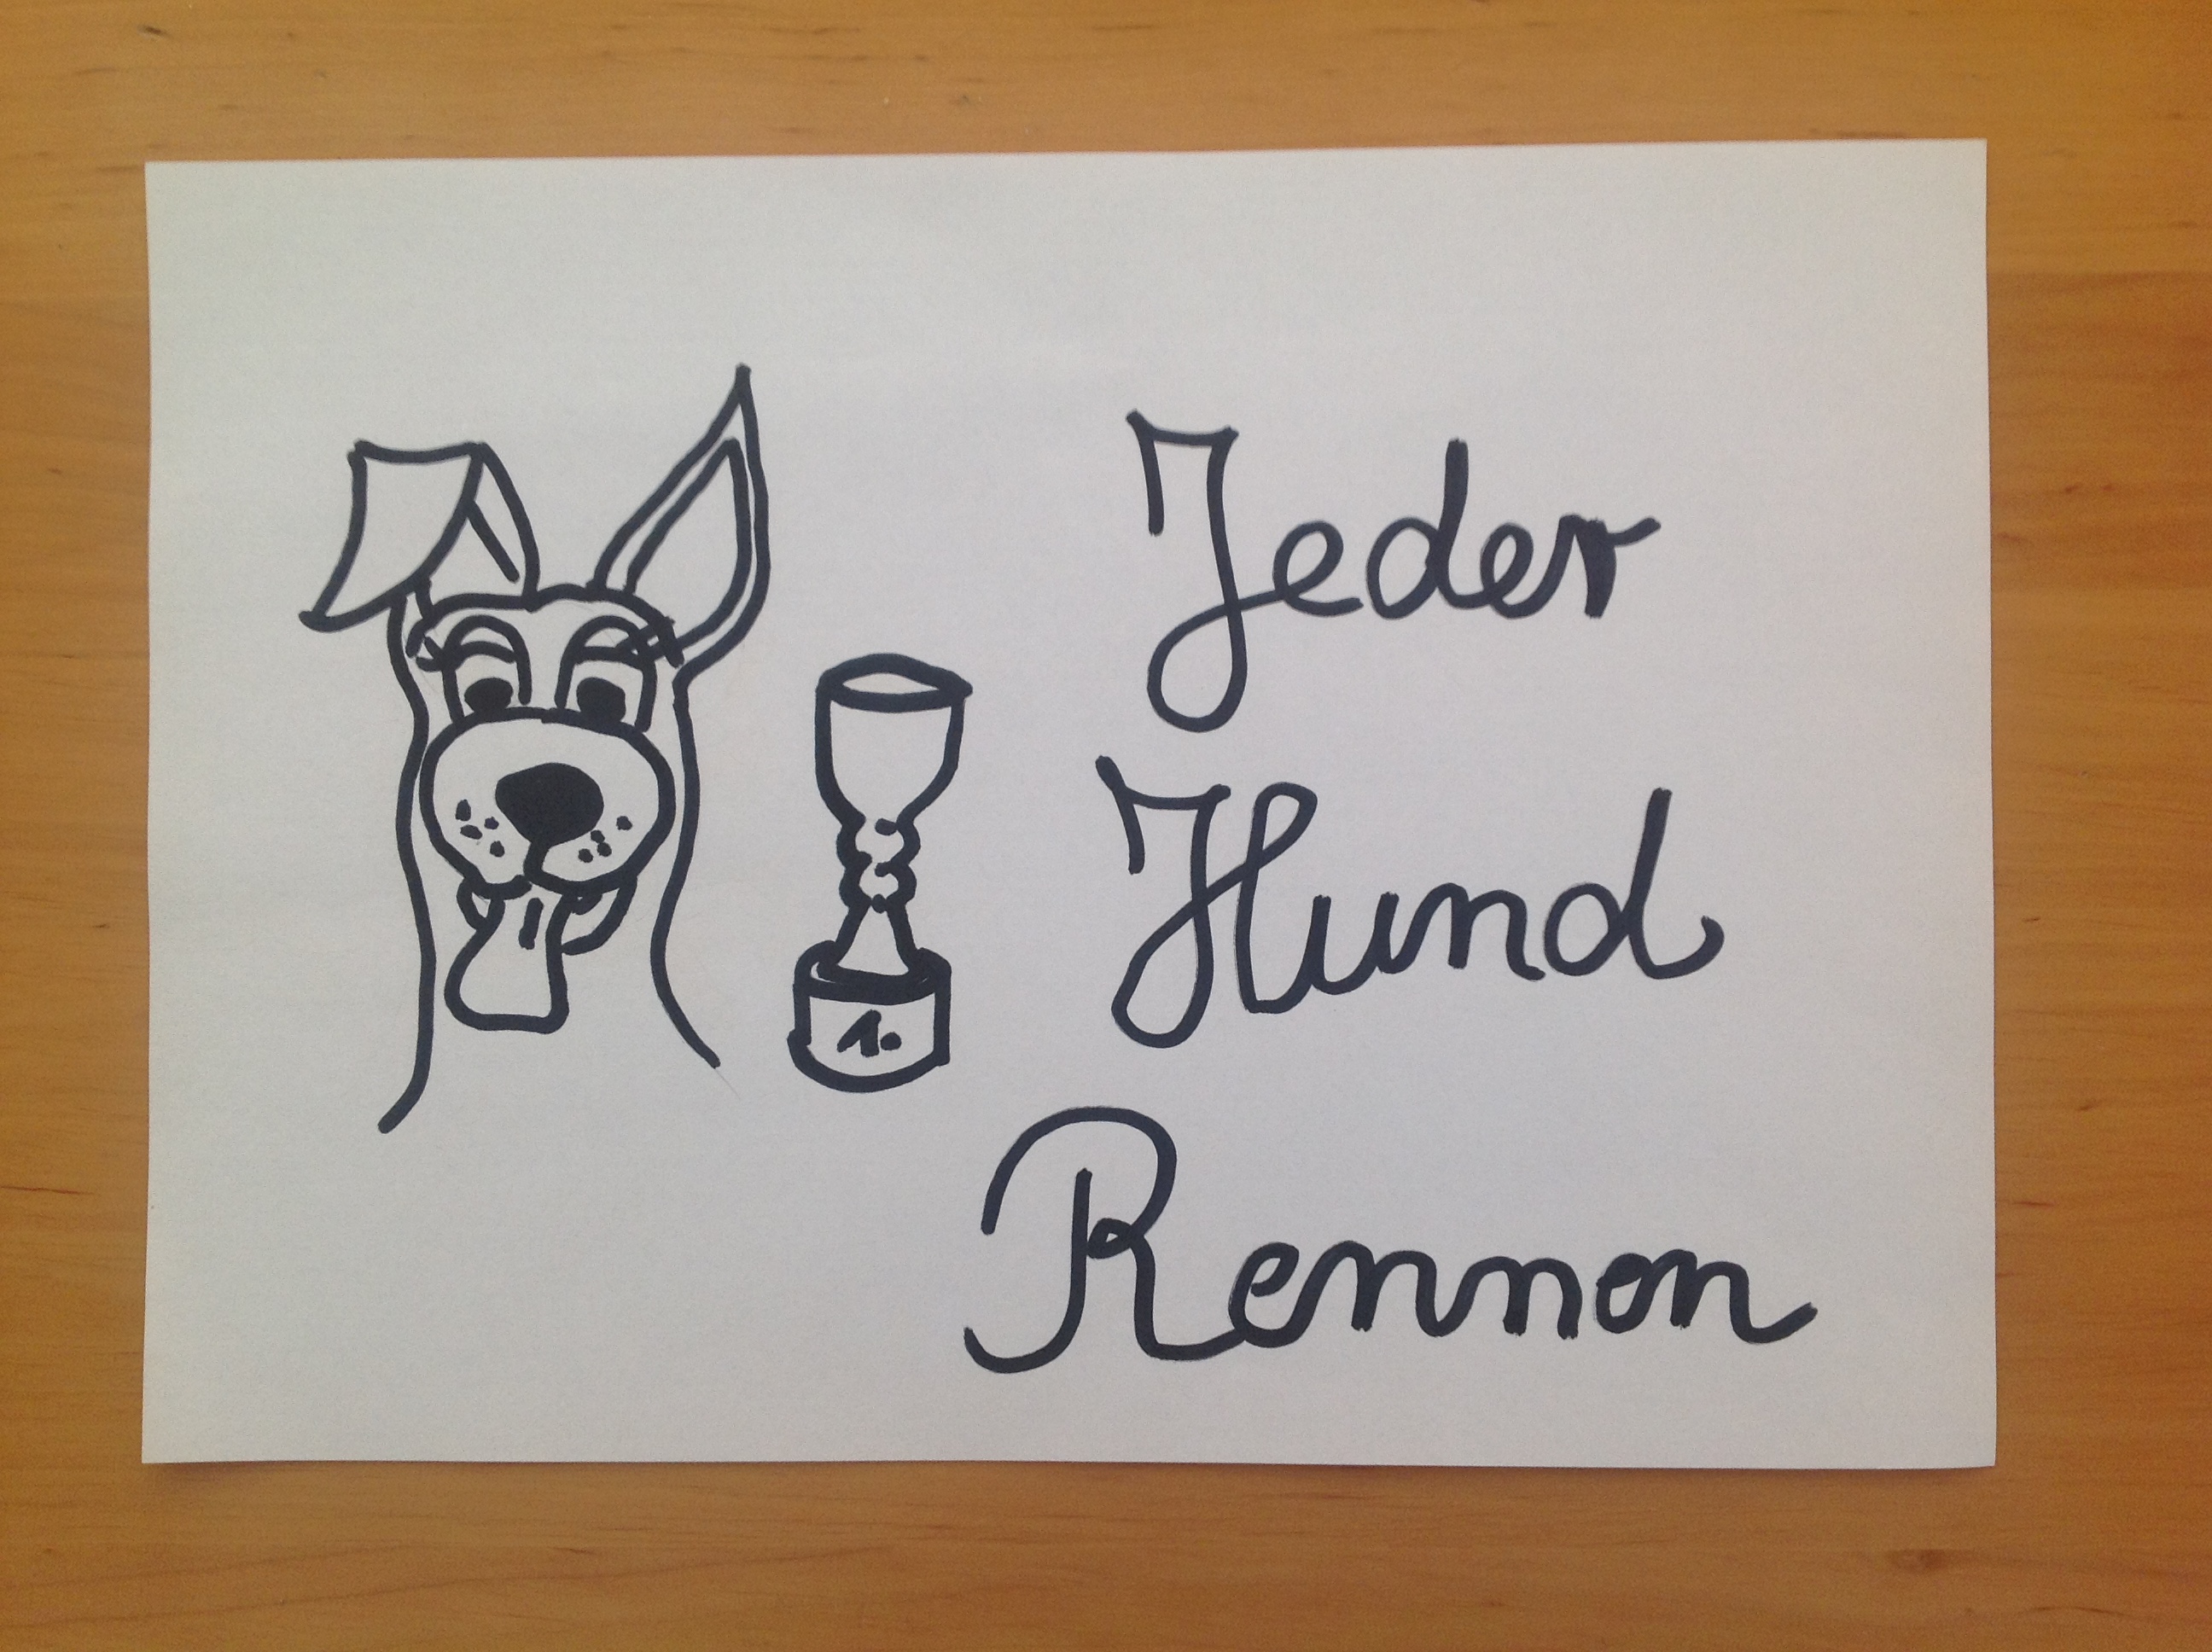 Jeder
Hund
1.
Rennen